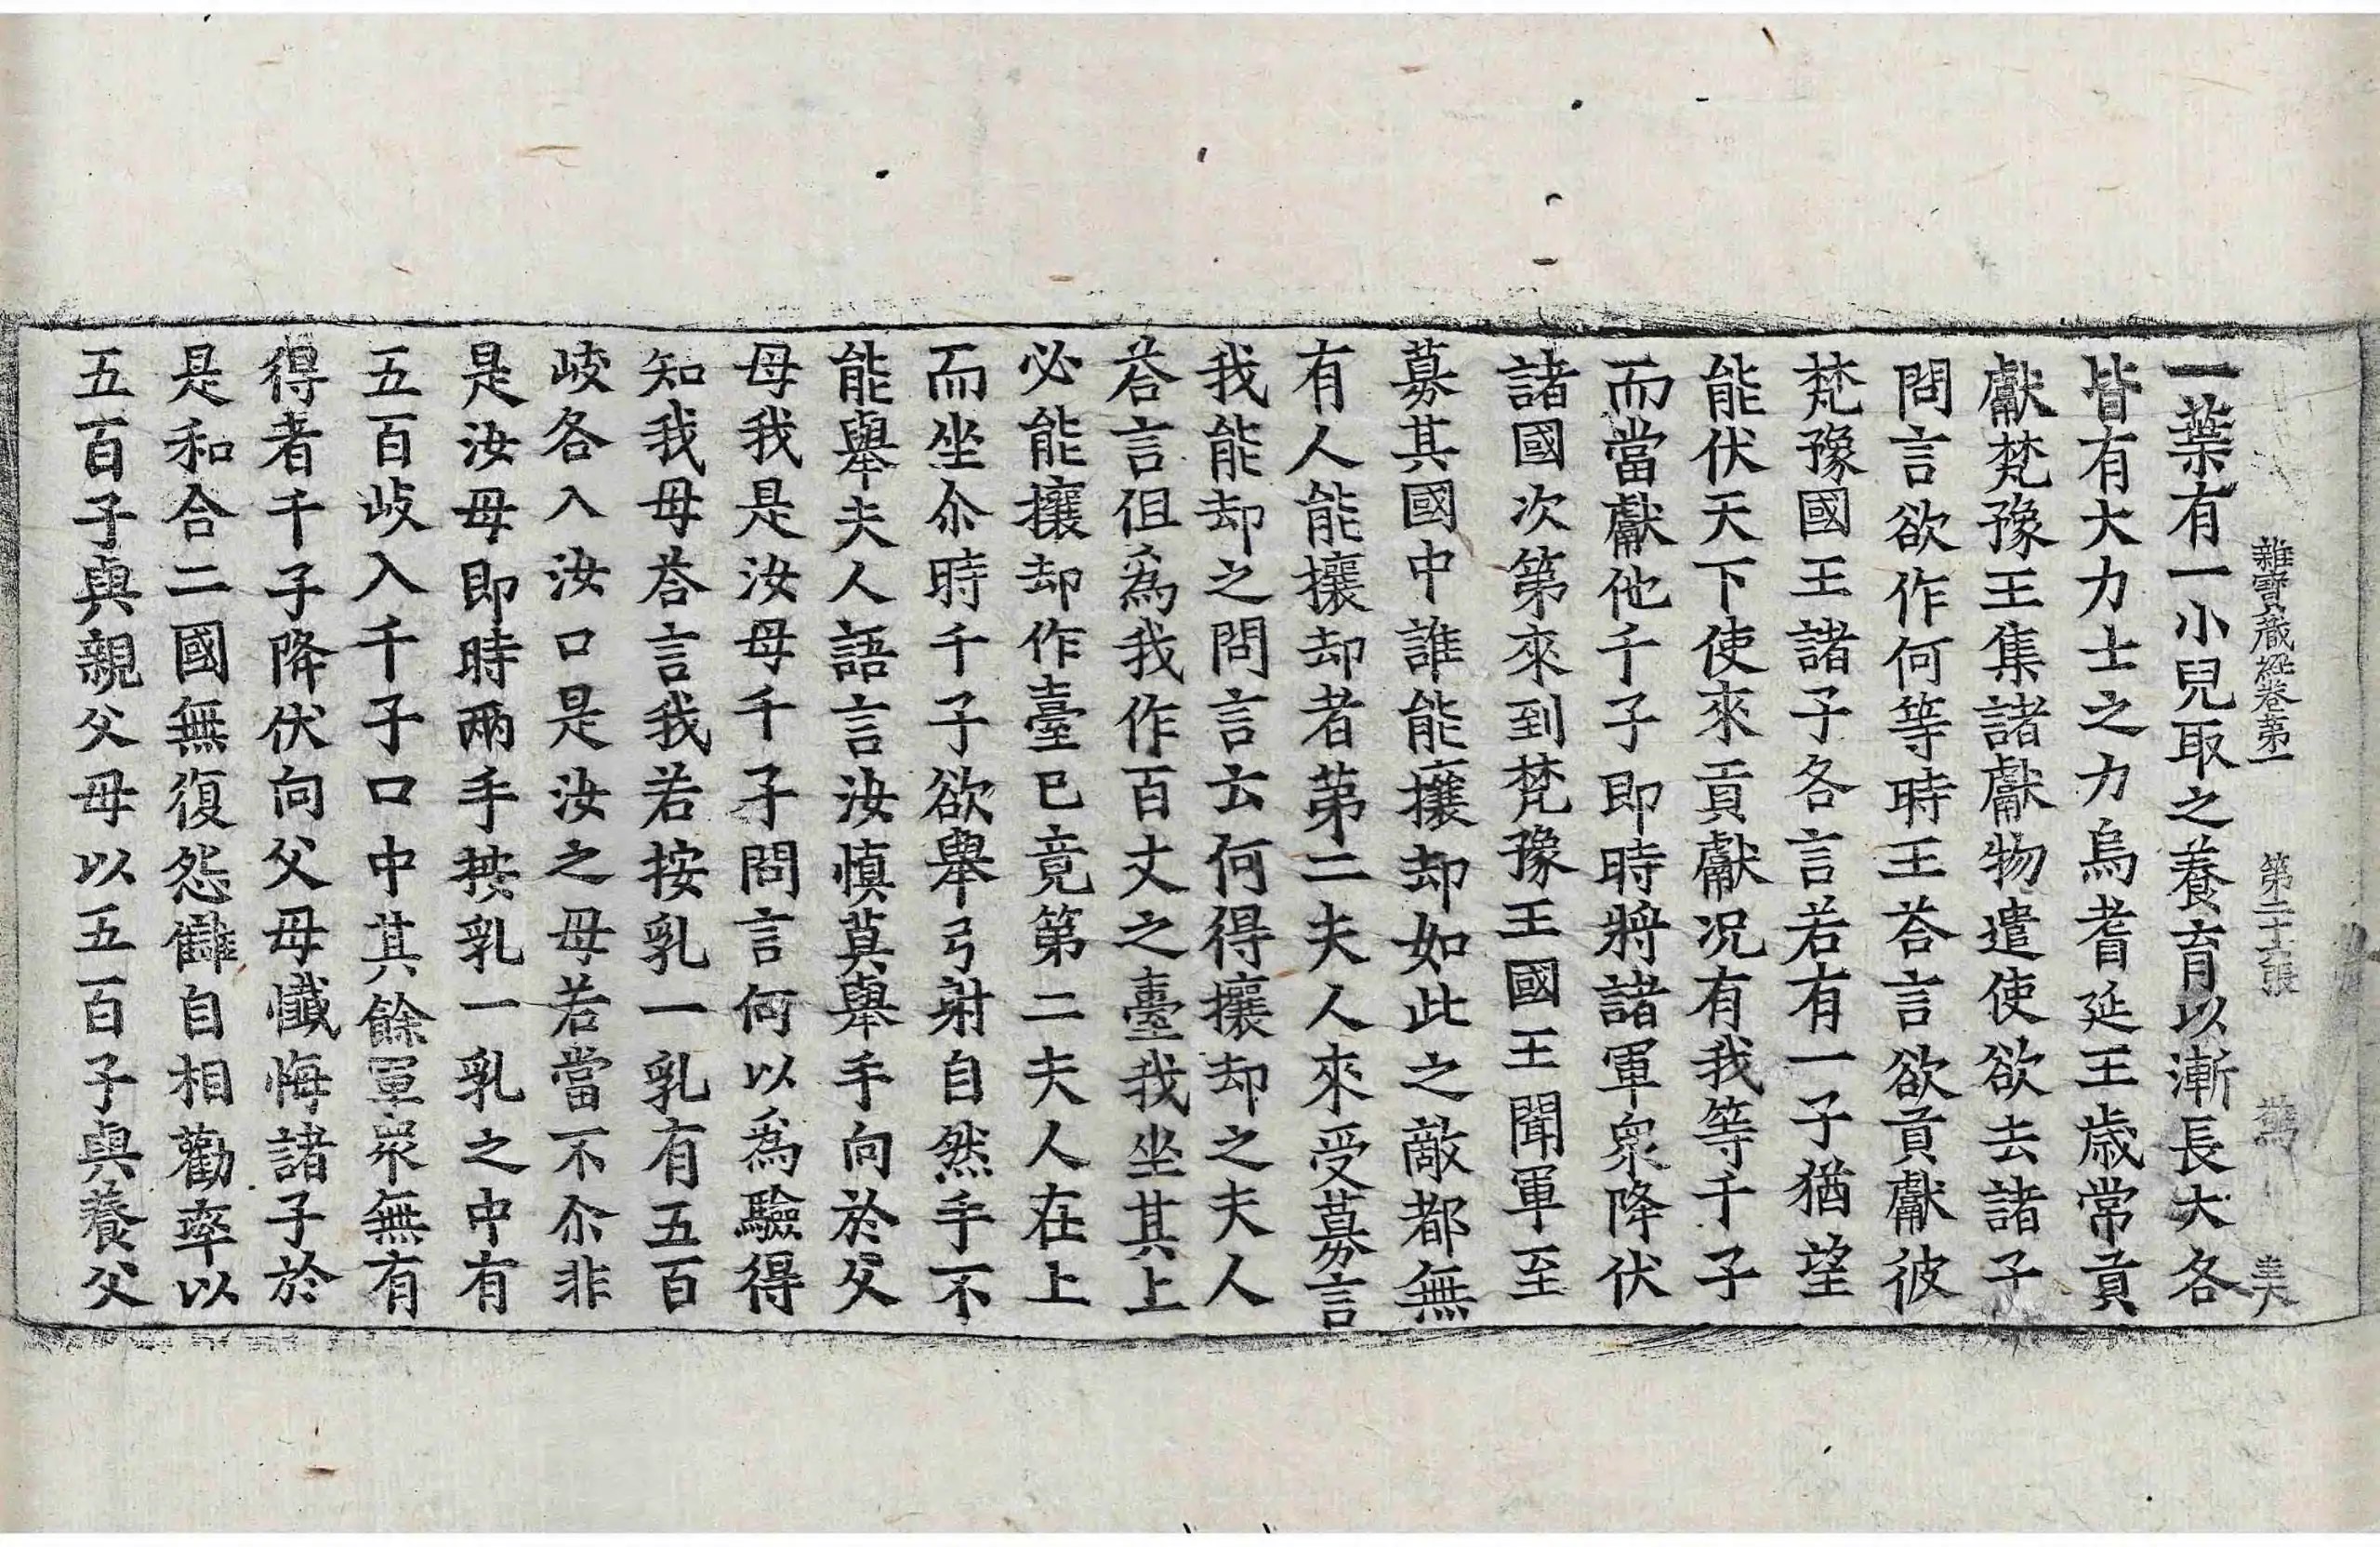 雜寶藏經卷第一 第二十六張
一葉有一小兒取之養育以漸長大各
皆有大力士之力烏耆延王歲常貢
獻梵豫王集諸獻物遣使欲去諸子
問言欲作何等時王荅言欲貢獻彼
梵豫國王諸子各言若有一子猶望
能伏天下使來貢獻况有我等千子
而當獻他千子即時將諸軍衆降伏
諸國次第來到梵豫王國王聞軍至
募其國中誰能攘却如此之敵都無
有人能攘却者第二夫人來受募言
我能却之問言云何得攘却之夫人
荅言但為我作百丈之臺我坐其上
必能攘却作臺已竟第二夫人在上
而坐尒時千子欲舉弓射自然手不
能舉夫人語言汝慎莫舉手向於父
母我是汝母千子問言何以為驗得
知我母荅言我若按乳一乳有五百
岐各入汝口是汝之母若當不尒非
是汝母即時兩手按乳一乳之中有
五百岐入千子口中其餘軍衆無有
得者千子降伏向父母懺悔諸子於
是和合二國無復怨讎自相勸率以
五百子與親父母以五百子與養父